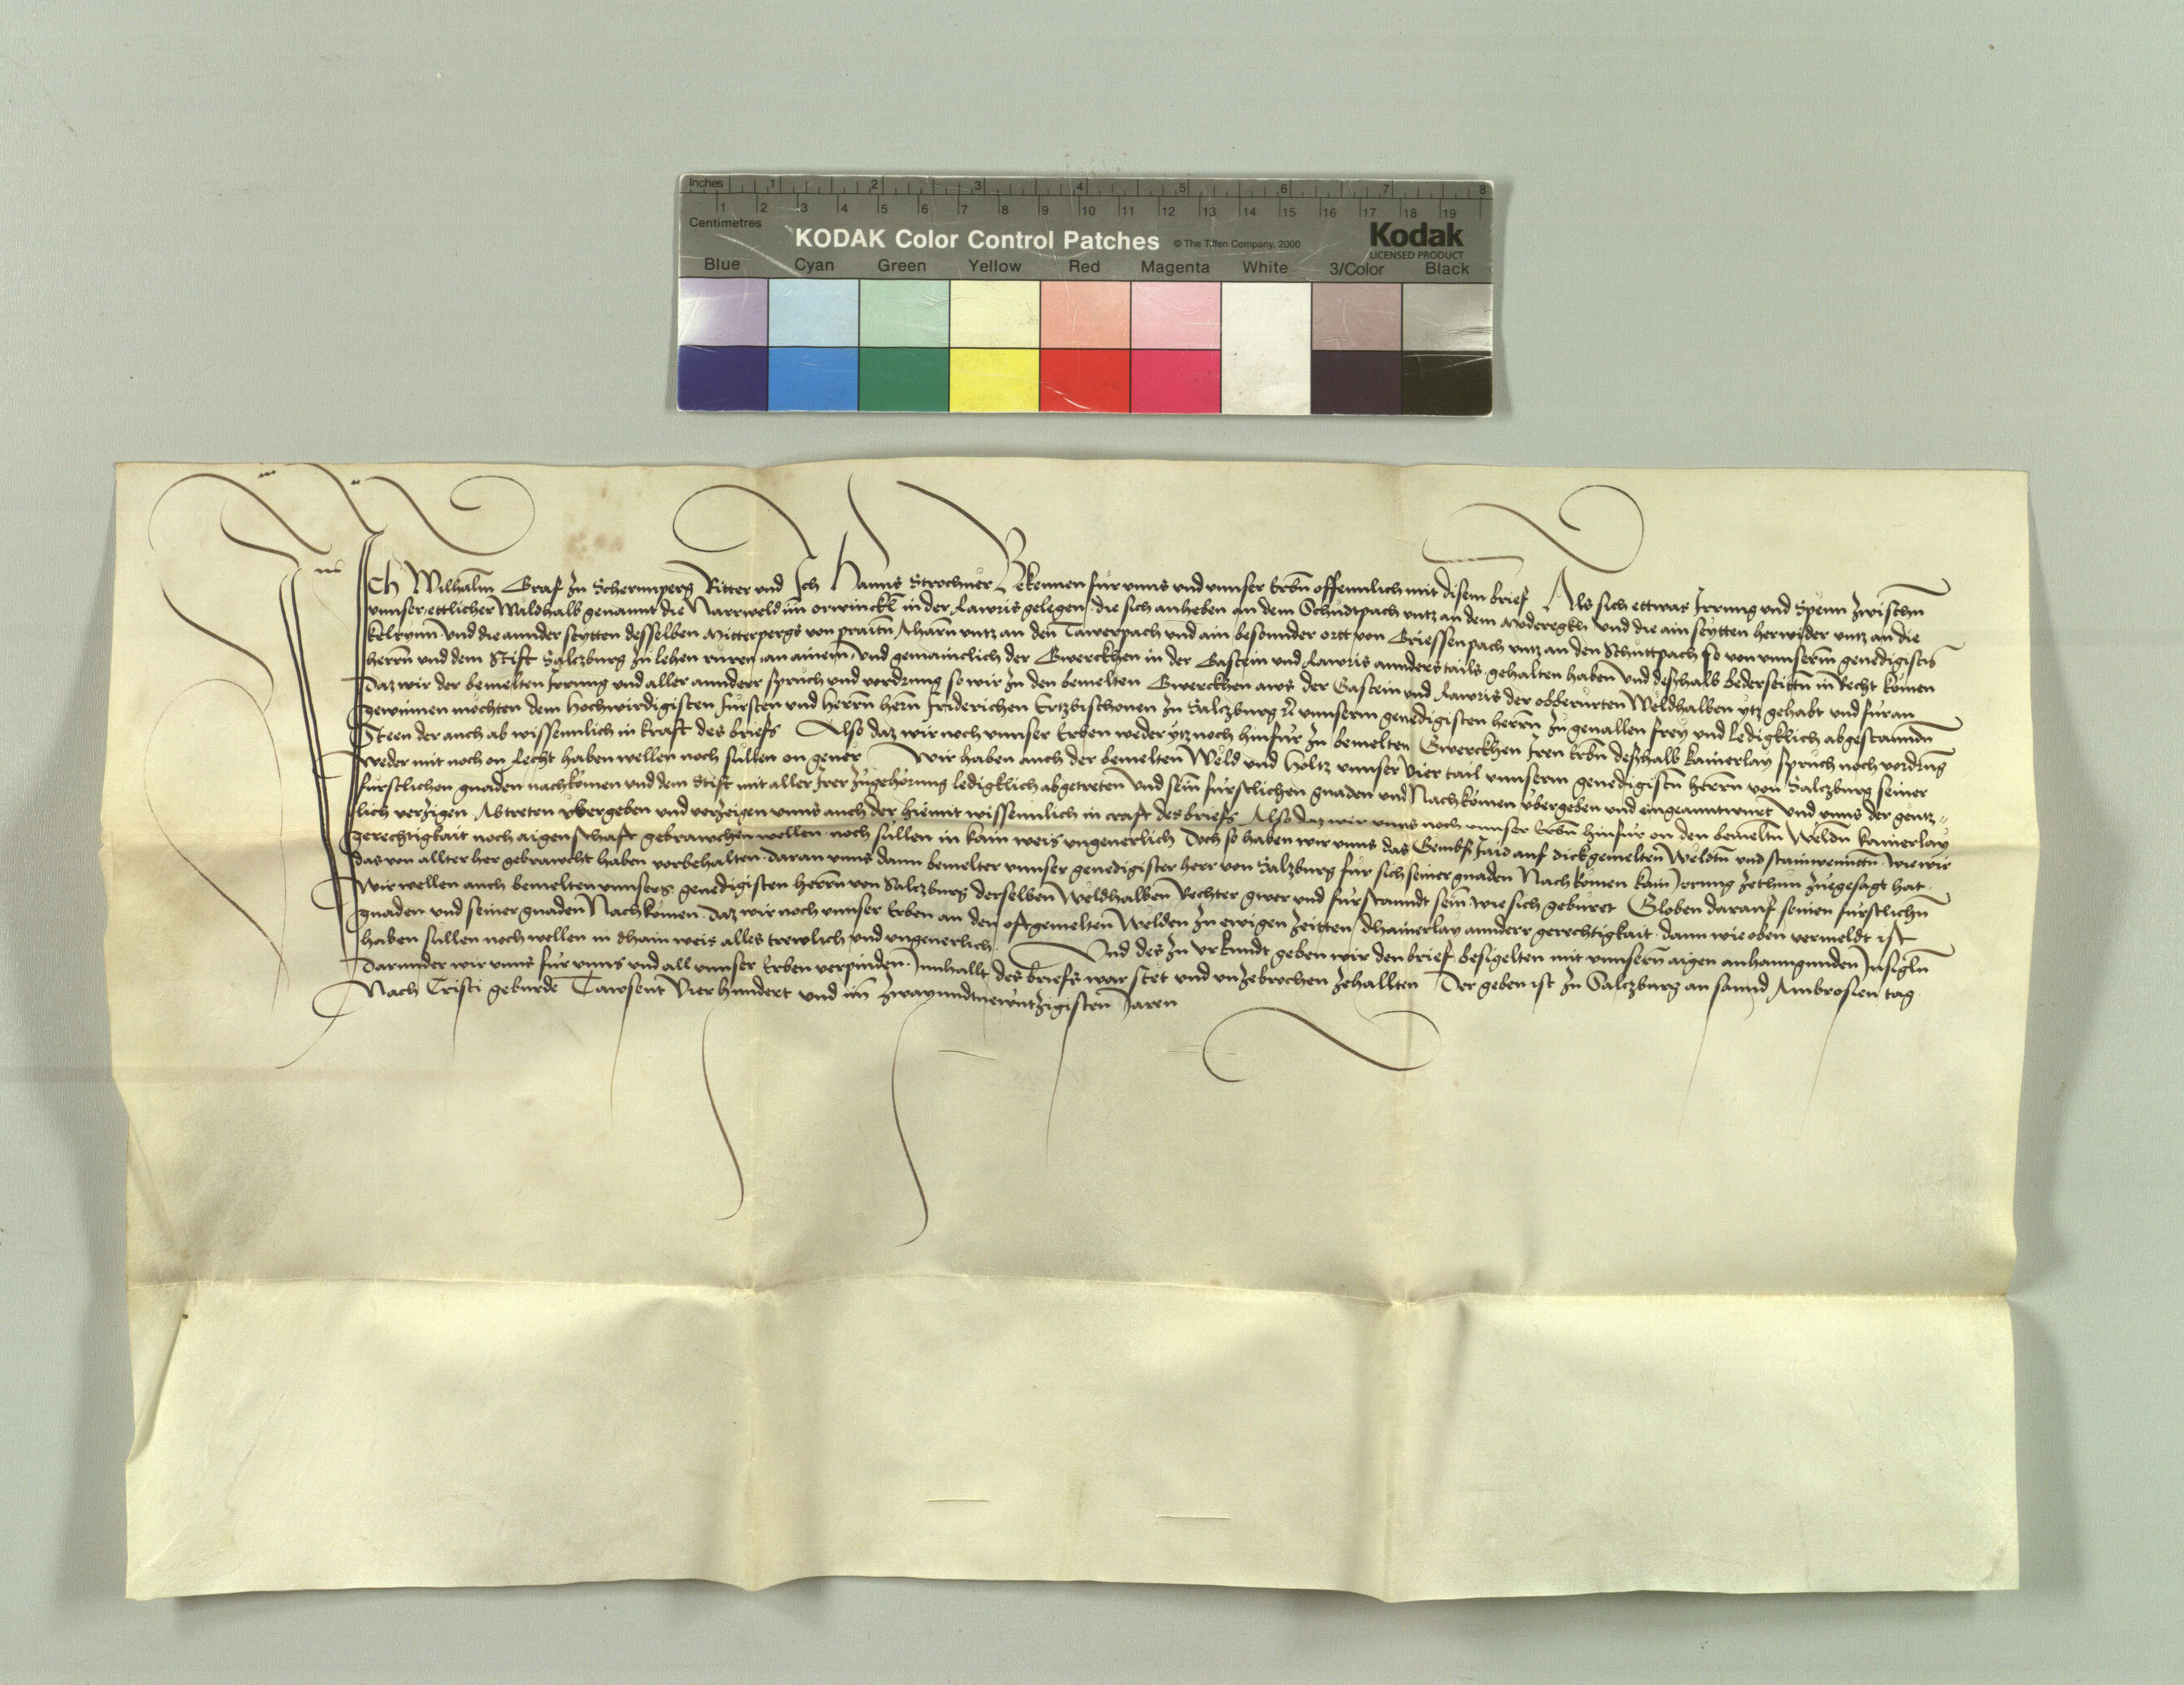 Inches 1 2 3 4 5 6 7 8
1 2 3 4 5 6 7 8 9 10 11 12 13 14 15 16 17 18 19
Centimetres
KODAK Color Control Patches © The Tiffen Company, 2000 Kodak
LICENSED PRODUCT
Blue Cyan Green Yellow Red Magenta White 3/Color Black
Ich Wilhalm Graf zu Schernnperg Ritter und Ich Hanns Strochner Bekennen für unns und unnser Erbn offennlich mit disem brief Als sich ettwas Irrung und Spenn zwischn
unnser ettlicher Wäldhalb genannt die Narrweld im orwinckl in der Rawris gelegen die sich anheben an dem Schudtpach untz an dem Moderegkh und die ain seytten herwider untz an die
und die annder seytten desselben Mitterpergs von praitn Aharn untz an den Tawerpach und ain besonnder ortt von Griessenpach untz an den Schuttpach so von unnserm genedigistn
herrn und dem Stift Salczburg zu lehen rüren an ainem und gemainclich der Gwerckhen in der Gastein und Rawris annderstails gehalten haben und deshalb bederseittn in Recht komen
Daz wir der bemelten Irrung und aller annderr spruch und vordrung so wir zu den bemelten Gwerckhen aws der Gastein und Rawris der obberurten Weldhalben ytz gehabt und füran
gewinnen mochten dem hochwirdigisten fürsten und herrn hern Friderichen Ertzbischouen zu Salczburg unnserm genedigisten herrn zu geuallen frey und ledigklich abgestannden
Steen der auch ab wissennlich in kraft des briefs Also daz wir noch unnser Erben weder ytz noch hinfür zu bemelten Gwerckhen Iren Erbn deshalb kainerlay spruch noch vordrung
weder mit noch on Recht haben wellen noch sullen on geuer Wir haben auch der bemelten Weld und Holtz unnser vier tail unnserm genedigistn herrn von Salczburg seiner
fürstlichen gnaden nachkomen und dem Stift mit aller Irer zugehorung ledigklich abgetreten und sein fürstlichen gnaden und Nachkomen übergeben und eingeanntwurt und unns der gentz-
lich verzigen Abtreten übergeben und verzeigen unns auch der hiemit wissennlich in craft des briefs Also daz wir unns noch unnser Erbn hinfür on den bemeltn Weldn kainerlay
gerechtigkait noch aigenschaft gebrawchen wellen noch sullen in kain weis ungeuerlich Doch so haben wir unns das Gembs Iaid auf dickgemelten Weldtn und wie wir
das von allter her gebrawcht haben vorbehalten Daran unns dann bemelter unnser genedigister herr von Salczburg für sich seiner gnaden Nachkomen kain Irrung zethun zuegesagt hat
Wir wellen auch bemelten unnsers genedigisten herrn von Salczburg derselben Weldhalben Rechter gwer und fürstanndt sein wie sich geburet Globen darauf seinen fürstlichn
gnaden und seiner gnaden Nachkomen Daz wir noch unnser Erben an den oftgemelten Welden zu ewigen zeitten dhainerlay annderr gerechtigkait dann wie oben vermeldt ist
haben sullen noch wellen in dhain weis alles trewlich und ungeuerlich Und des zu Urkundt geben wir den brief besigelten mit unnsern aigen anhanngunden Insigln
Darunder wir unns für unns und all unnser Erben verpinden Innhallt des briefs war stet und unzebrochen zehallten Der geben ist zu Salczburg an sannd Ambrosien tag
Nach Cristi geburde Tawsent Vierhundert und im zwayundnewntzigisten Jaren